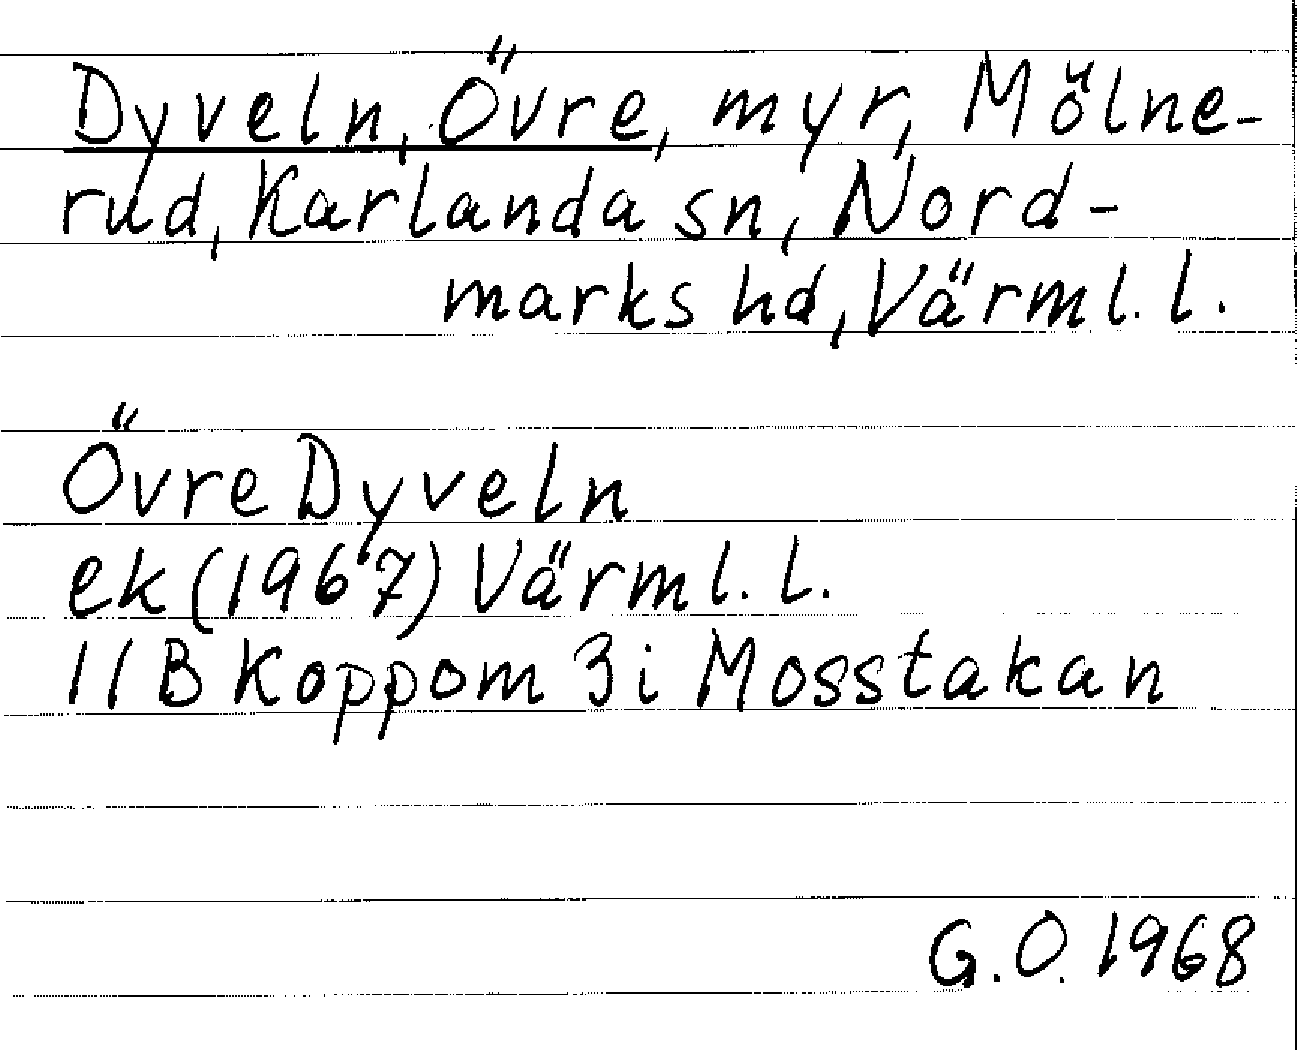 Dyveln, Övre, myr, Mölne-
rud, Karlanda sn, Nord-
marks hd, Värml. l.
Övre Dyveln
ek (1967) Värml. l.
11B Koppom 3i Mosstakan
G.O. 1968